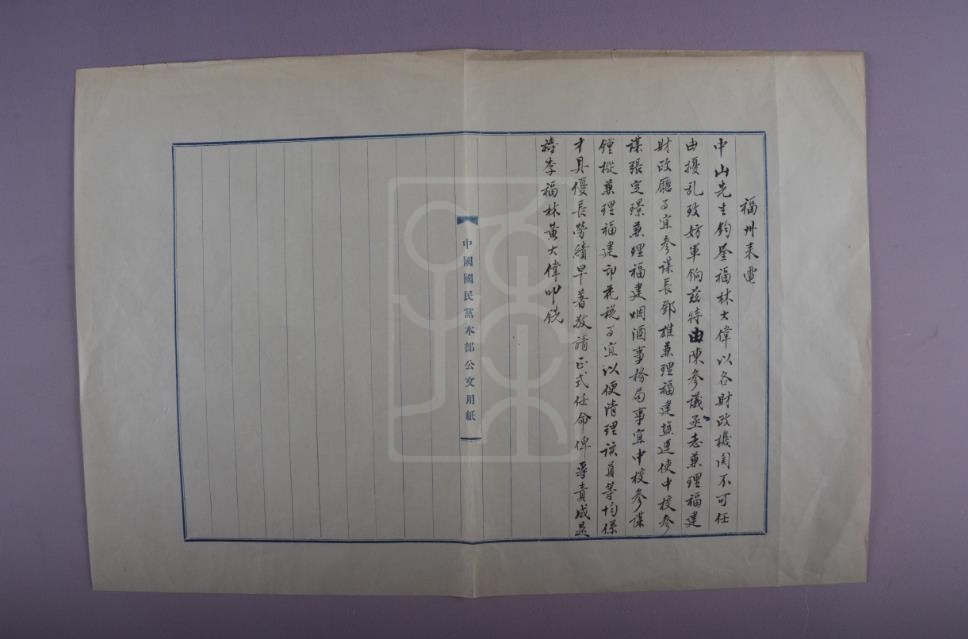 福州来電
中山先生鈞鑒福林大偉以各財政機関不可任
由擾乱致妨軍餉茲特由陳参議丞志兼理福建
財政廳事宜参謀長鄧雄兼理福建塩運使中校参
謀張定璟兼理福建烟酒事務局事宜中校参謀
鍾樅兼理福建印花税事宜以便清理該員等均係
才具優長勞績早著敬請正式任命俾専責成是
禱李福林黄大偉叩
中國國民黨本部公文用紙